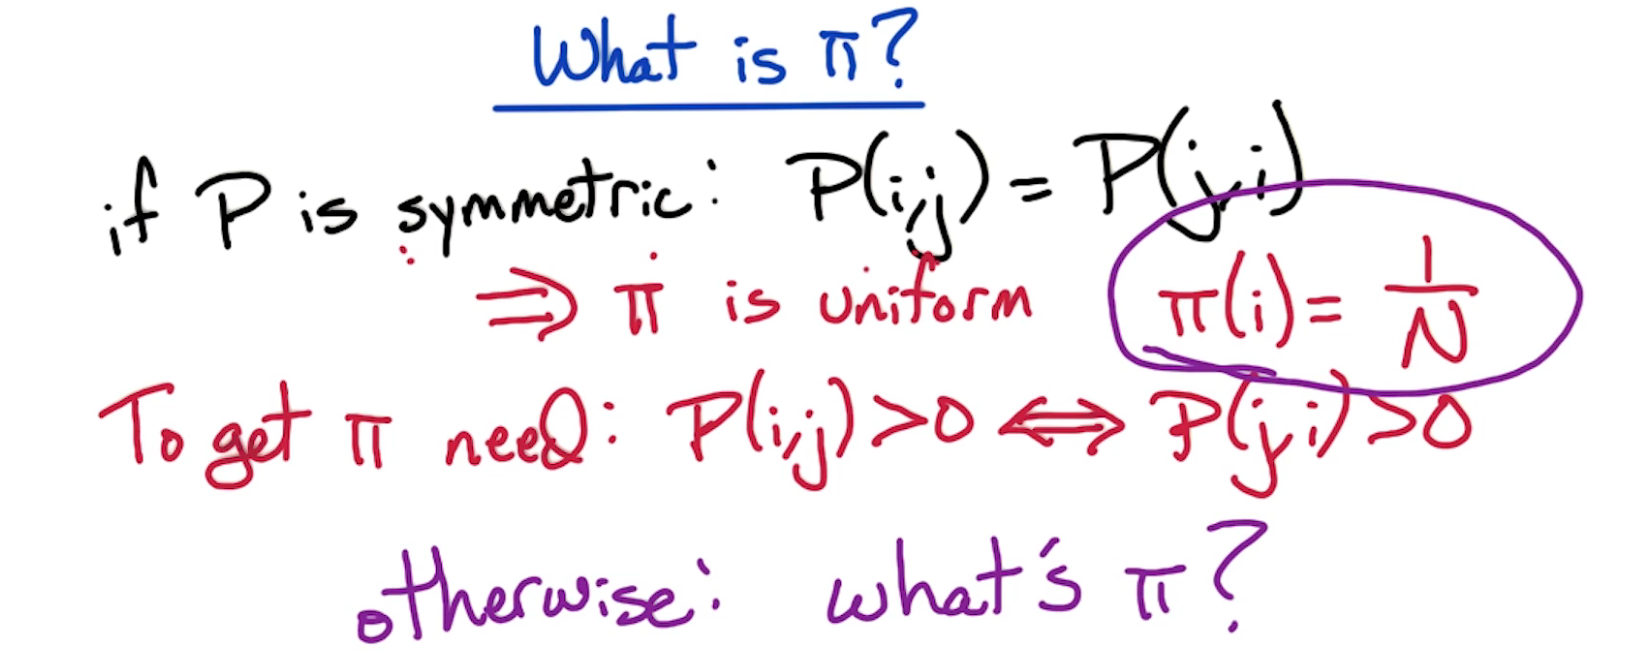 What is π?
if P is symmetric: P(i,j) = P(j,i)
⇒ π is uniform π(i) = 1/N
To get π need: P(i,j)>0 ⇔ P(j,i)>0
otherwise: what's π?